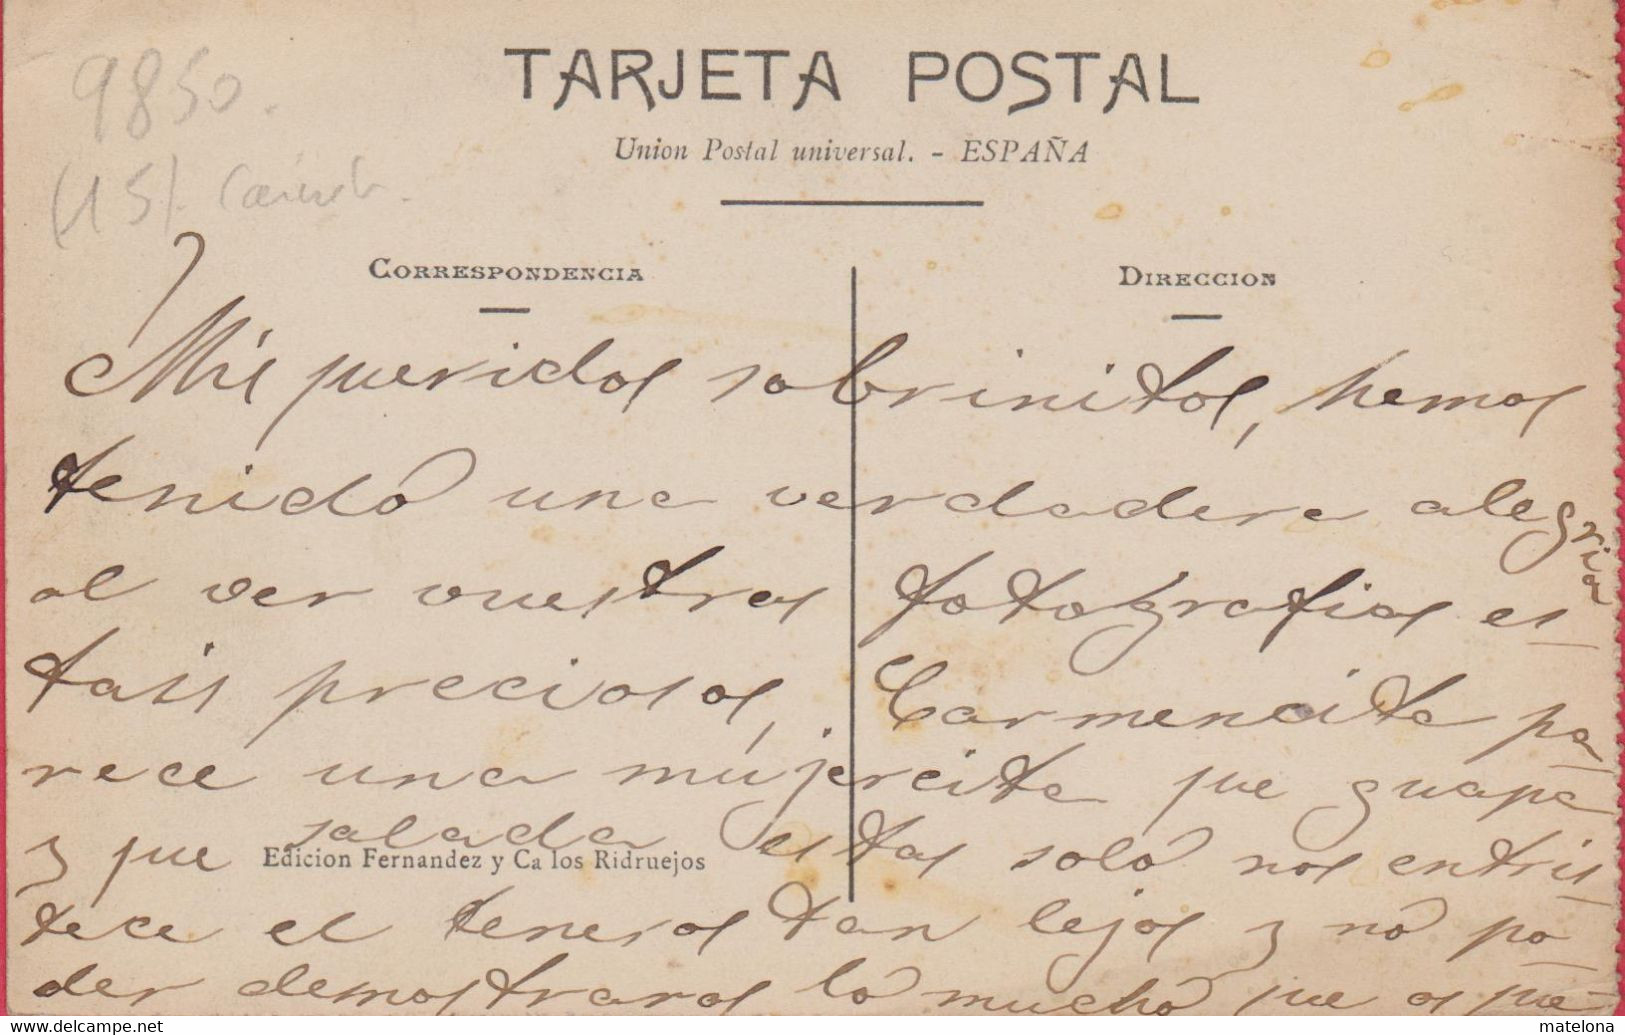 9850.
TARJETA POSTAL
Union Postal universal. - ESPAÑA
CORRESPONDENCIA
DIRECCION
Mis queridos sobrinitos, hemos
tenidó una verdadera alegria
al ver vuestras fotografias es-
tais preciosos, Carmencita pa-
rece una mújercita que guapa
y que salada estas soló nos entris-
tece el teneros tan lejos y nó po-
der demostraros ló muchó que os que-
Edicion Fernandez y Ca los Ridruejos
www.delcampe.net
matelona